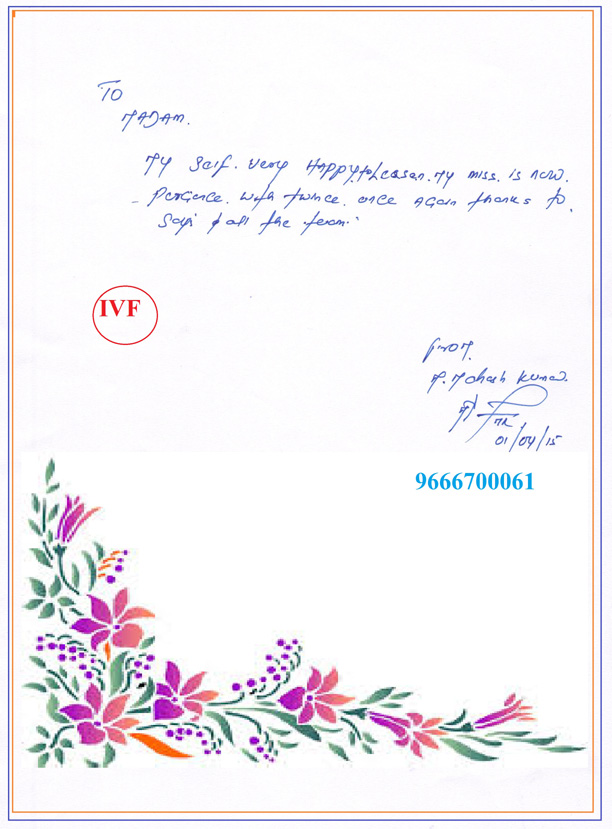 TO
MADAM.
My self. very Happy.
My miss. is now.
with twince. once again thanks to.
& all the team.
IVF
From.
Kumar.
01/04/15
9666700061